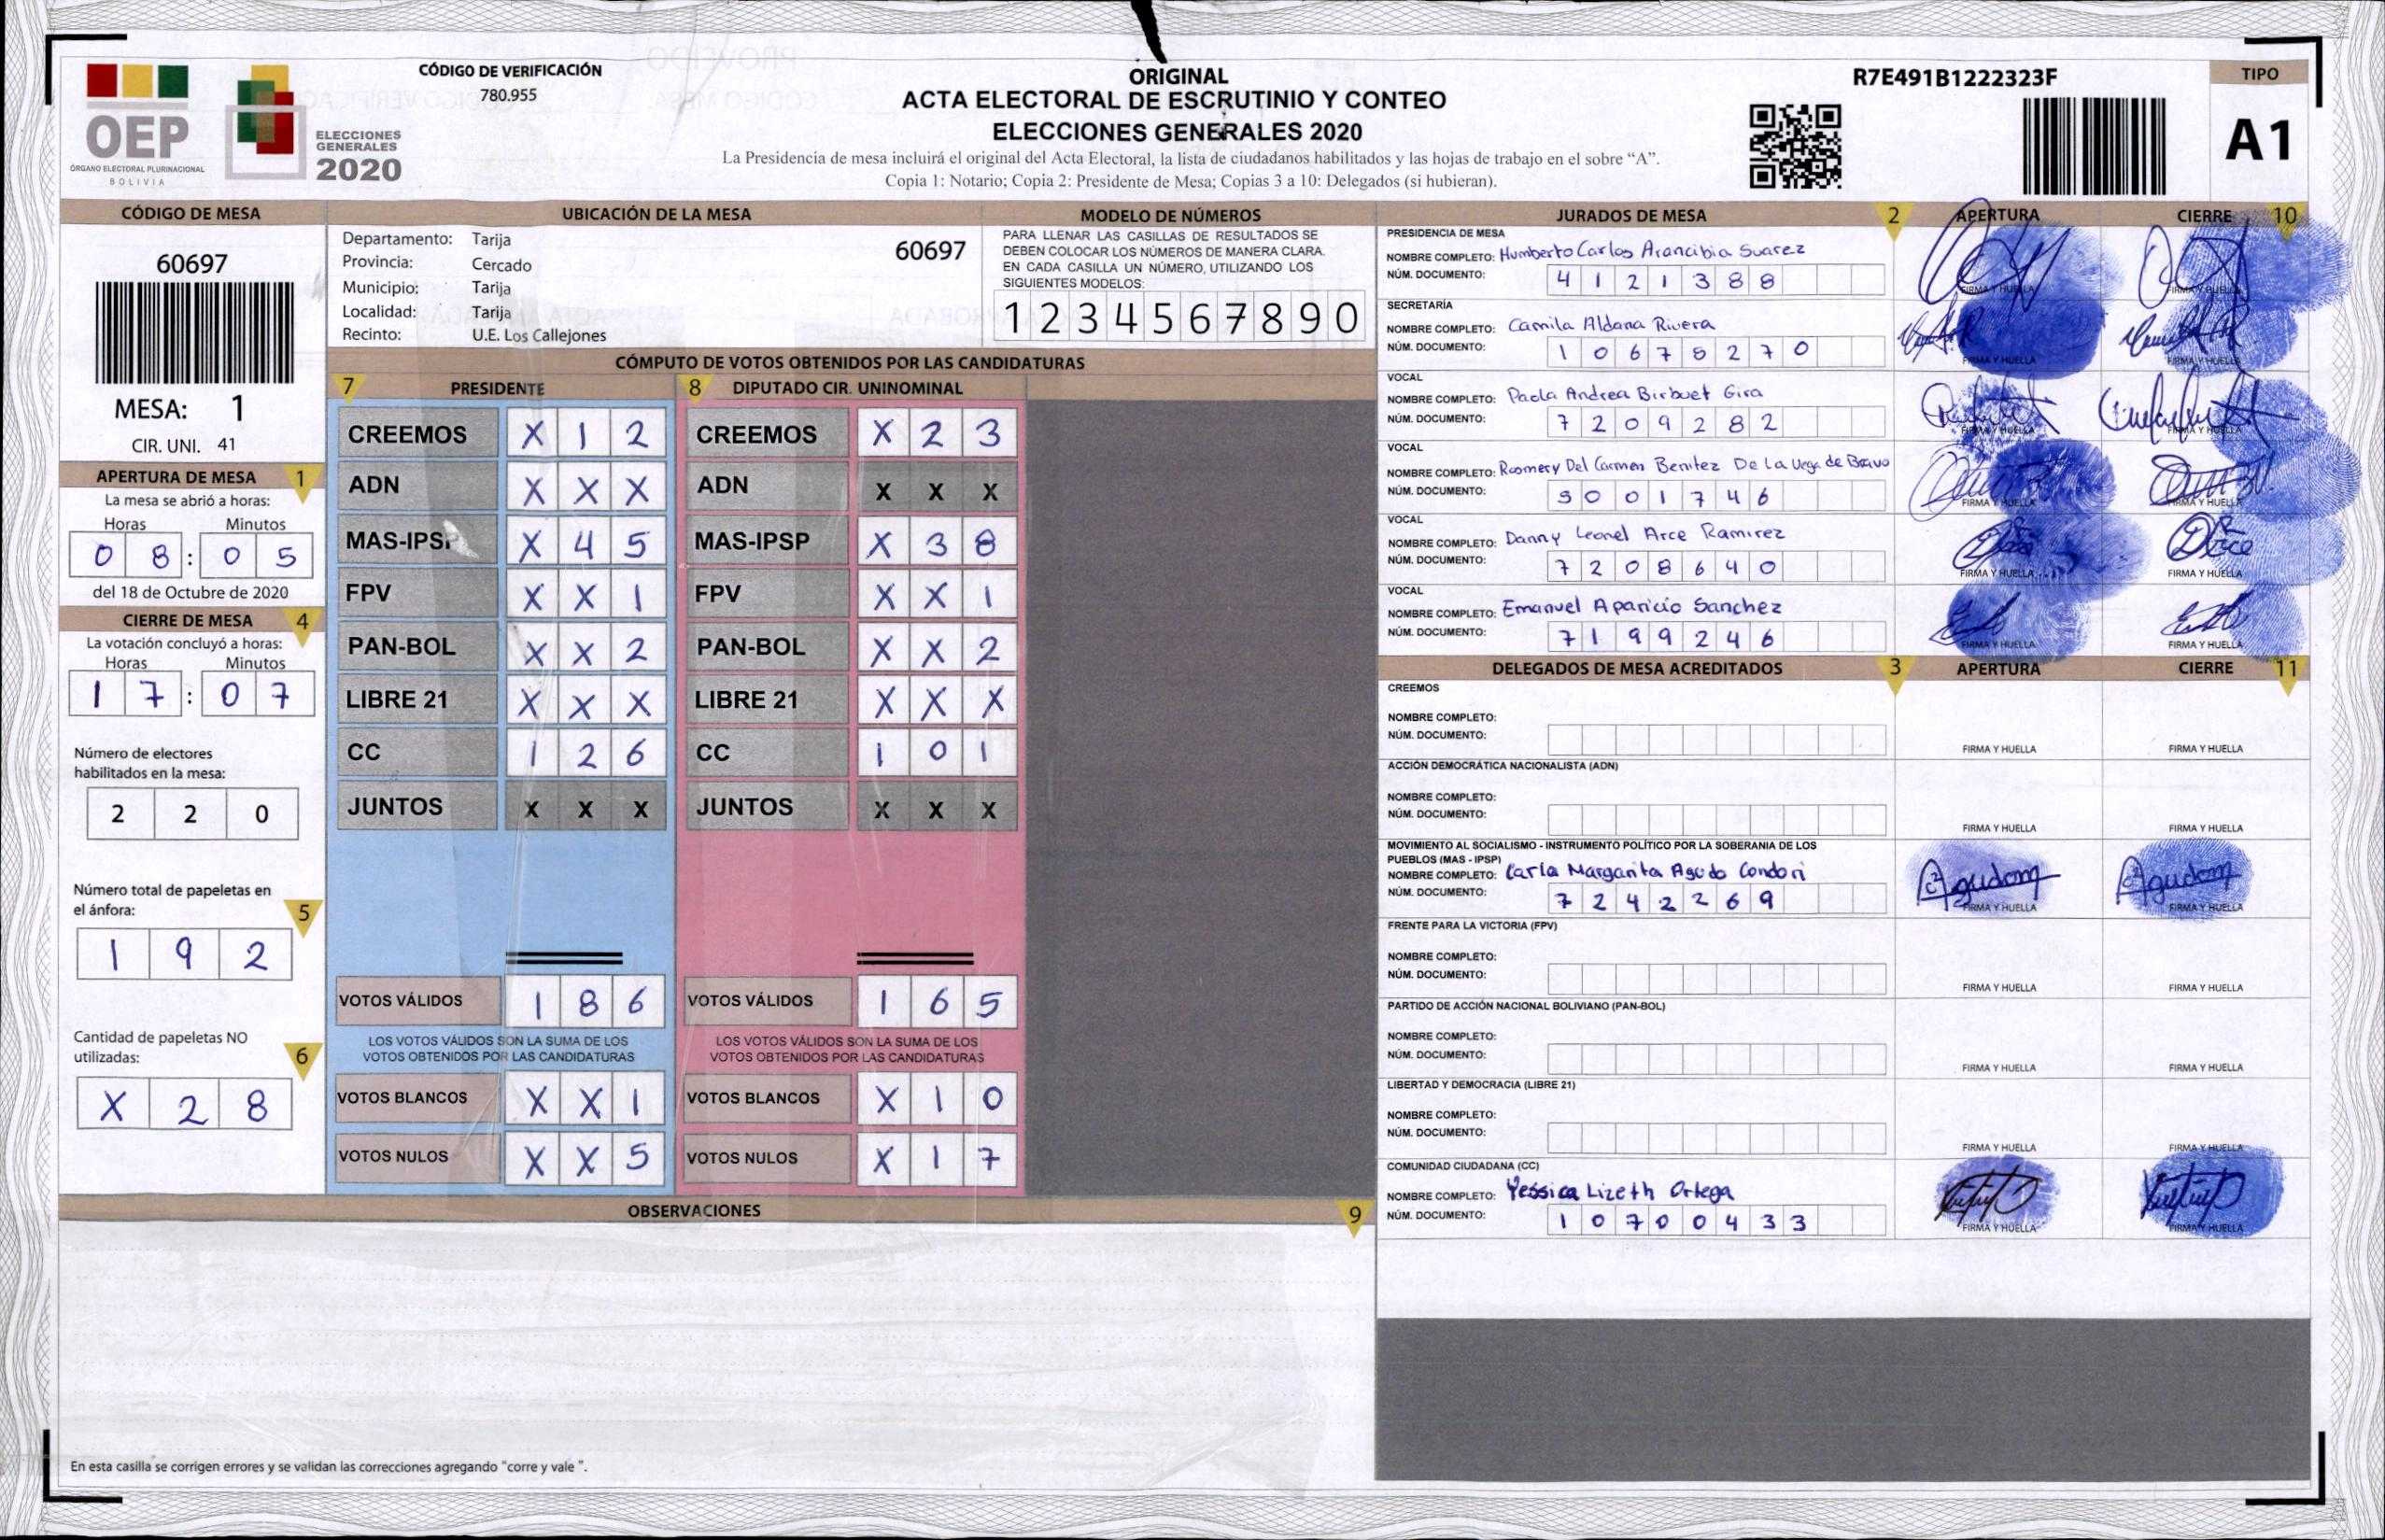 CÓDIGO DE VERIFICACIÓN
780.955
OEP
ÓRGANO ELECTORAL PLURINACIONAL
BOLIVIA
ELECCIONES
GENERALES
2020
ORIGINAL
ACTA ELECTORAL DE ESCRUTINIO Y CONTEO
ELECCIONES GENERALES 2020
La Presidencia de mesa incluirá el original del Acta Electoral, la lista de ciudadanos habilitados y las hojas de trabajo en el sobre “A”.
Copia 1: Notario; Copia 2: Presidente de Mesa; Copias 3 a 10: Delegados (si hubieran).
R7E491B1222323F
TIPO
A1
CÓDIGO DE MESA
60697
MESA: 1
CIR. UNI. 41
APERTURA DE MESA 1
La mesa se abrió a horas:
Horas Minutos
0 8 : 0 5
del 18 de Octubre de 2020
CIERRE DE MESA 4
La votación concluyó a horas:
Horas Minutos
1 7 : 0 7
Número de electores
habilitados en la mesa:
2 2 0
Número total de papeletas en
el ánfora: 5
1 9 2
Cantidad de papeletas NO
utilizadas: 6
X 2 8
UBICACIÓN DE LA MESA
Departamento: Tarija
60697
Provincia: Cercado
Municipio: Tarija
Localidad: Tarija
Recinto: U.E. Los Callejones
MODELO DE NÚMEROS
PARA LLENAR LAS CASILLAS DE RESULTADOS SE
DEBEN COLOCAR LOS NÚMEROS DE MANERA CLARA.
EN CADA CASILLA UN NÚMERO, UTILIZANDO LOS
SIGUIENTES MODELOS:
1 2 3 4 5 6 7 8 9 0
CÓMPUTO DE VOTOS OBTENIDOS POR LAS CANDIDATURAS
7 PRESIDENTE 8 DIPUTADO CIR. UNINOMINAL
CREEMOS X 1 2 CREEMOS X 2 3
ADN X X X ADN X X X
MAS-IPSP X 4 5 MAS-IPSP X 3 8
FPV X X 1 FPV X X 1
PAN-BOL X X 2 PAN-BOL X X 2
LIBRE 21 X X X LIBRE 21 X X X
CC 1 2 6 CC 1 0 1
JUNTOS X X X JUNTOS X X X
VOTOS VÁLIDOS 1 8 6 VOTOS VÁLIDOS 1 6 5
LOS VOTOS VÁLIDOS SON LA SUMA DE LOS LOS VOTOS VÁLIDOS SON LA SUMA DE LOS
VOTOS OBTENIDOS POR LAS CANDIDATURAS VOTOS OBTENIDOS POR LAS CANDIDATURAS
VOTOS BLANCOS X X 1 VOTOS BLANCOS X 1 0
VOTOS NULOS X X 5 VOTOS NULOS X 1 7
OBSERVACIONES 9
En esta casilla se corrigen errores y se validan las correcciones agregando "corre y vale ".
JURADOS DE MESA 2 APERTURA CIERRE 10
PRESIDENCIA DE MESA
NOMBRE COMPLETO: Humberto Carlos Arancibia Suarez
NÚM. DOCUMENTO: 4 1 2 1 3 8 8
FIRMA Y HUELLA FIRMA Y HUELLA
SECRETARÍA
NOMBRE COMPLETO: Camila Aldana Rivera
NÚM. DOCUMENTO: 1 0 6 7 5 2 7 0
FIRMA Y HUELLA FIRMA Y HUELLA
VOCAL
NOMBRE COMPLETO: Paola Andrea Birbuet Gira
NÚM. DOCUMENTO: 7 2 0 9 2 8 2
FIRMA Y HUELLA FIRMA Y HUELLA
VOCAL
NOMBRE COMPLETO: Rosmery Del Carmen Benitez De La Vega de Bravo
NÚM. DOCUMENTO: 5 0 0 1 7 4 6
FIRMA Y HUELLA FIRMA Y HUELLA
VOCAL
NOMBRE COMPLETO: Danny Leonel Arce Ramirez
NÚM. DOCUMENTO: 7 2 0 8 6 4 0
FIRMA Y HUELLA FIRMA Y HUELLA
VOCAL
NOMBRE COMPLETO: Emanuel Aparicio Sanchez
NÚM. DOCUMENTO: 7 1 9 9 2 4 6
FIRMA Y HUELLA FIRMA Y HUELLA
DELEGADOS DE MESA ACREDITADOS 3 APERTURA CIERRE 11
CREEMOS
NOMBRE COMPLETO:
NÚM. DOCUMENTO:
FIRMA Y HUELLA FIRMA Y HUELLA
ACCIÓN DEMOCRÁTICA NACIONALISTA (ADN)
NOMBRE COMPLETO:
NÚM. DOCUMENTO:
FIRMA Y HUELLA FIRMA Y HUELLA
MOVIMIENTO AL SOCIALISMO - INSTRUMENTO POLÍTICO POR LA SOBERANIA DE LOS
PUEBLOS (MAS - IPSP)
NOMBRE COMPLETO: Carla Margarita Agudo Condori
NÚM. DOCUMENTO: 7 2 4 2 2 6 9
FIRMA Y HUELLA FIRMA Y HUELLA
FRENTE PARA LA VICTORIA (FPV)
NOMBRE COMPLETO:
NÚM. DOCUMENTO:
FIRMA Y HUELLA FIRMA Y HUELLA
PARTIDO DE ACCIÓN NACIONAL BOLIVIANO (PAN-BOL)
NOMBRE COMPLETO:
NÚM. DOCUMENTO:
FIRMA Y HUELLA FIRMA Y HUELLA
LIBERTAD Y DEMOCRACIA (LIBRE 21)
NOMBRE COMPLETO:
NÚM. DOCUMENTO:
FIRMA Y HUELLA FIRMA Y HUELLA
COMUNIDAD CIUDADANA (CC)
NOMBRE COMPLETO: Yessica Lizeth Ortega
NÚM. DOCUMENTO: 1 0 7 0 0 4 3 3
FIRMA Y HUELLA FIRMA Y HUELLA